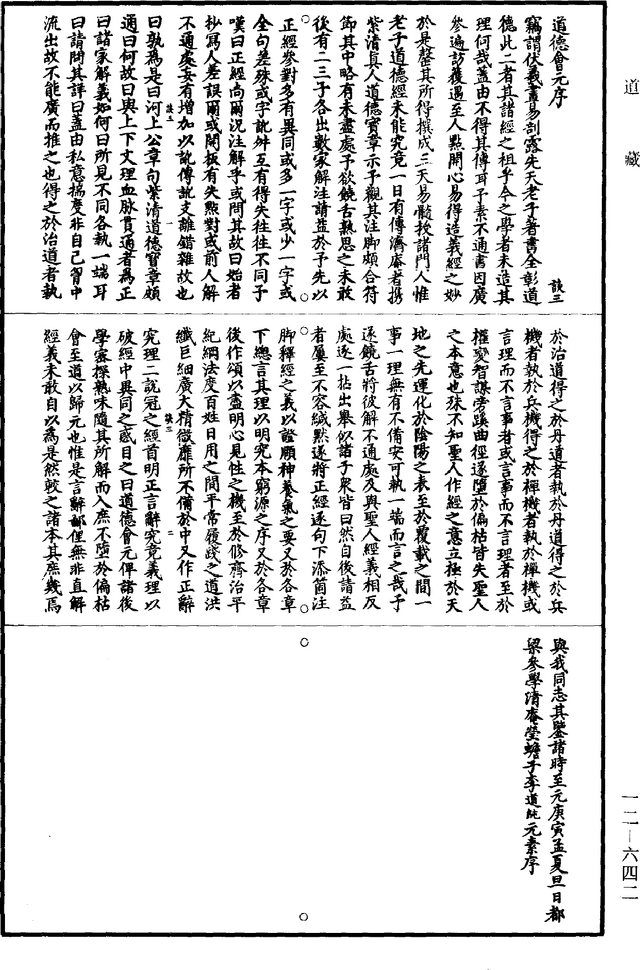 道藏
道德會元序
談三
竊謂伏羲畫易剖露先天老子著書全彰道
德此二者其諸經之祖乎今之學者未造其
理何哉蓋由不得其傳耳予素不通書因廣
參遍訪獲遇至人點開心易得造義經之妙
於是罄其所得撰成三天易髓授諸門人惟
老子道德經未能究竟一日有傳濟庵者携
紫清真人道德寶章示予觀其注脚頗合符
節其中略有未盡處予欲饒舌熟思之未敢
後有二三子各出數家解注請益於予先以
正經參對多有異同或多一字或少一字或
全句差殊或字訛舛互有得失往往不同予
嘆曰正經尚爾況注解乎或問其故曰始者
抄寫人差誤爾或開板有失點對或前人解
不通處妄有增加以訛傳訛支離錯雜故也
談三
一
曰孰為是曰河上公章句紫清道德寶章頗
通曰何故曰與上下文理血脉貫通者為正
曰諸家解義如何曰所見不同各執一端耳
曰請問其詳曰蓋由私意揣度非自己胷中
流出故不能廣而推之也得之於治道者執
於治道得之於丹道者執於丹道得之於兵
機者執於兵機得之於禪機者執於禪機或
言理而不言事者或言事而不言理者至於
權變智謀旁蹊曲徑遂墮於偏枯皆失聖人
之本意也殊不知聖人作經之意立極於天
地之先運化於陰陽之表至於覆載之間一
事一理無有不備安可執一端而言之哉予
遂饒舌將彼解不通處及與聖人經義相反
處逐一拈出舉似諸子衆皆曰然自後請益
者屢至不容緘默遂將正經逐句下添箇注
脚釋經之義以證頤神養氣之要又於各章
下總言其理以明究本窮源之序又於各章
後作頌以盡明心見性之機至於修齊治平
紀綱法度百姓日用之間平常履踐之道洪
纖巨細廣大精微靡所不備於中又作正辭
談三
二
究理二說冠之經首明正言辭究竟義理以
破經中異同之惑目之曰道德會元俾諸後
學密探熟味隨其所解而入庶不墮於偏枯
會至道以歸元也惟是言辭鄙俚無非直解
經義未敢自以為是然較之諸本其庶幾焉
與我同志其鑒諸時至元庚寅孟夏旦日都
梁參學清庵瑩蟾子李道純元素序
一二—六四二